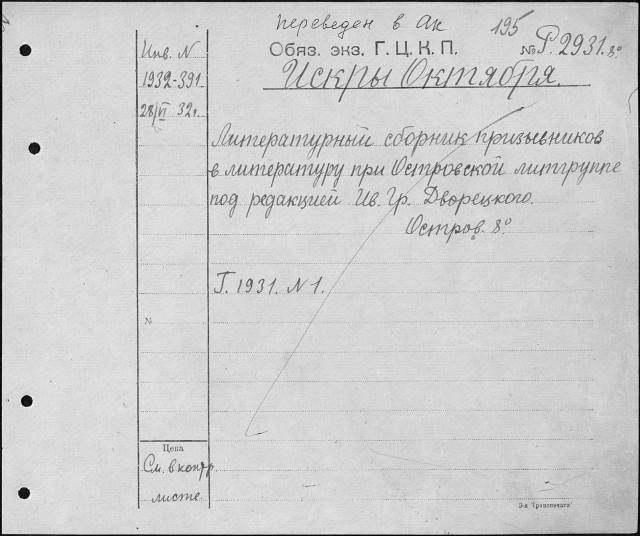 переведен в Ак 195
Обяз. экз. Г.Ц.К.П. № Р. 2931. 8º
Инв. N
1932-391
28/VI 32г.
Искры Октября.
Литературный сборник призывников
в литературу при Островской литгруппе
под редакцией Ив. Гр. Дворецкого.
Остров. 8º
Г. 1931. N 1.
№
Цена
См. в контр.
листе
5-я Транспечати